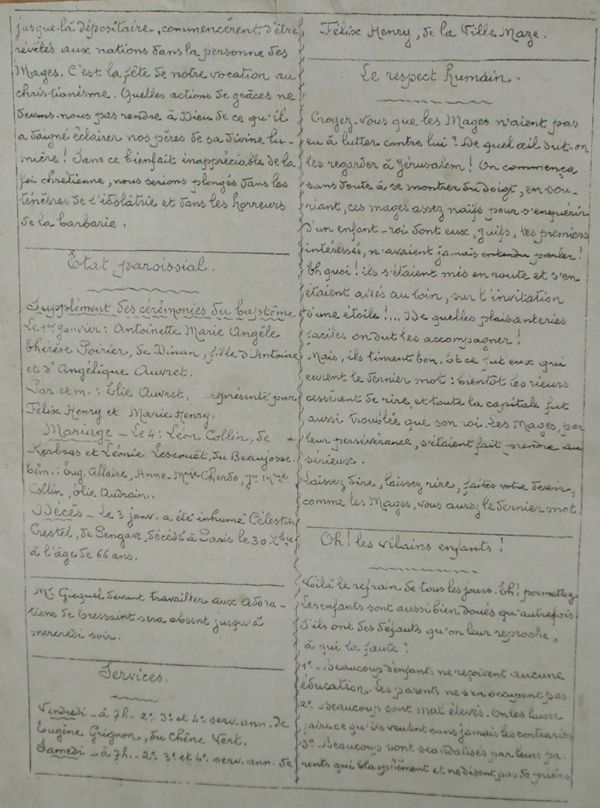 jusque-là dépositaire, commencèrent d'être
révélés aux nations dans la personne des
Mages. C'est la fête de notre vocation au
christianisme. Quelles actions de grâces ne
devons-nous pas rendre à Dieu de ce qu'il
a daigné éclairer nos pères de sa divine lu-
mière! Sans ce bienfait inappréciable de la
foi chrétienne, nous serions plongés dans les
ténèbres de l'idolâtrie et dans les horreurs
de la barbarie.
Etat paroissial.
Supplément des cérémonies du baptême
Le 1er janvier: Antoinette Marie Angèle
Thérèse Poirier, de Dinan, fille d'Antoine
et d'Angélique Auvret.
Par. et m.: Elie Auvret, représenté par
Félix Henry et Marie Henry.
Mariage - Le 4: Léon Collin, de
Kerbras et Léonie Lescouët, du Beaujosse.
Tém.: Eug. Allaire, Anne Mie Cherdo, Jn Mie
Collin, Olie Audrain.
Décès - Le 3 janv. a été inhumé Célestin
Crestel, de Lengave, décédé à Paris le 30 Xbre
à l'âge de 66 ans.
Mr Gicquel devant travailler aux Adora-
tions de Tressaint sera absent jusqu'à
mercredi soir.
Services.
Vendredi - à 7h. 2e 3e et 4e serv. ann. de
Eugène Grignon, du Chêne Vert.
Samedi - à 7h. 2e 3e et 4e serv. ann. de
Félix Henry, de la Ville Maze.
Le respect Humain.
Croyez-vous que les Mages n'aient pas
eu à lutter contre lui? De quel œil dut-on
les regarder à Jérusalem! On commença
sans doute à se montrer du doigt, en sou-
riant, ces mages assez naïfs pour s'enquérir
d'un enfant-roi dont eux, juifs, les premiers
intéressés, n'avaient jamais entendu parler!
Eh quoi! ils s'étaient mis en route et s'en
étaient allés au loin, sur l'invitation
d'une étoile!... De quelles plaisanteries
faciles on dut les accompagner!
Mais, ils tinrent bon. Et ce fut eux qui
eurent le dernier mot: bientôt les rieurs
cessèrent de rire, et toute la capitale fut
aussi troublée que son roi. Les Mages, par
leur persévérance, s'étaient fait prendre au
sérieux.
Laissez dire, laissez rire, faites votre devoir,
comme les Mages, vous aurez le dernier mot!
Oh! les vilains enfants!
Voilà le refrain de tous les jours. Eh! permettez
Les enfants sont aussi bien doués qu'autrefois.
S'ils ont des défauts qu'on leur reproche,
à qui la faute?
1°- Beaucoup d'enfants ne reçoivent aucune
éducation. Les parents ne s'en occupent pas
2°- Beaucoup sont mal élevés. On les laisse
faire ce qu'ils veulent sans jamais les contrarier
3°- Beaucoup sont scandalisés par leurs pa-
rents qui blasphèment et ne disent pas de prière